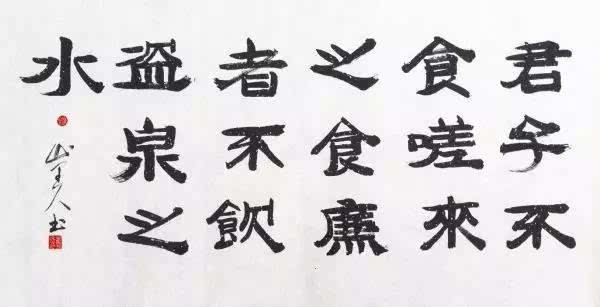 君子不
食嗟來
之食廉
者不飲
盜泉之
水
山人书